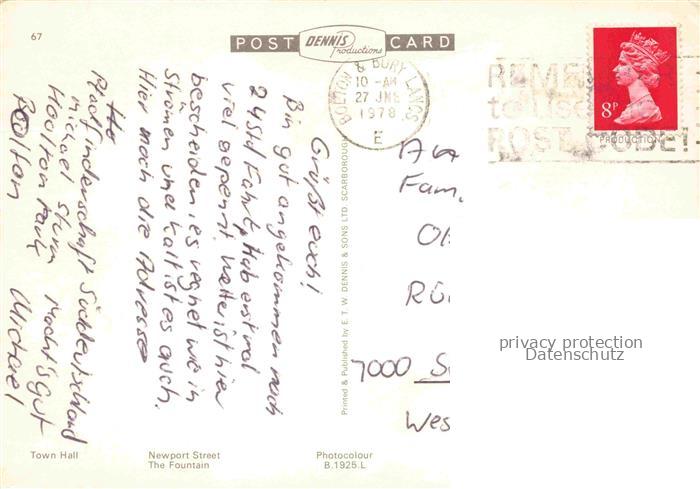 67
POST DENNIS Productions CARD
BOLTON & BURY LANCS
10 - AM
27 JNE
1978
E
REMEMBER
to use
POST CODE!
8P
PRODUCTION
Grüßt euch!
Bin gut angekommen nach
24 Std Fahrt, Hab erstmal
viel gepennt. Wetter ist hier
bescheiden, es regnet wie in
Strömen und kalt ist es auch.
Hier noch die Adresse
Pfadfinderschaft Süddeutschland
Michael Sturm
Hoolton Park Macht's gut
Bolton Michael
Fam.
7000
Wes
Printed & Published by E. T. W. DENNIS & SONS LTD. SCARBOROUGH
privacy protection
Datenschutz
Town Hall
Newport Street
The Fountain
Photocolour
B.1925.L